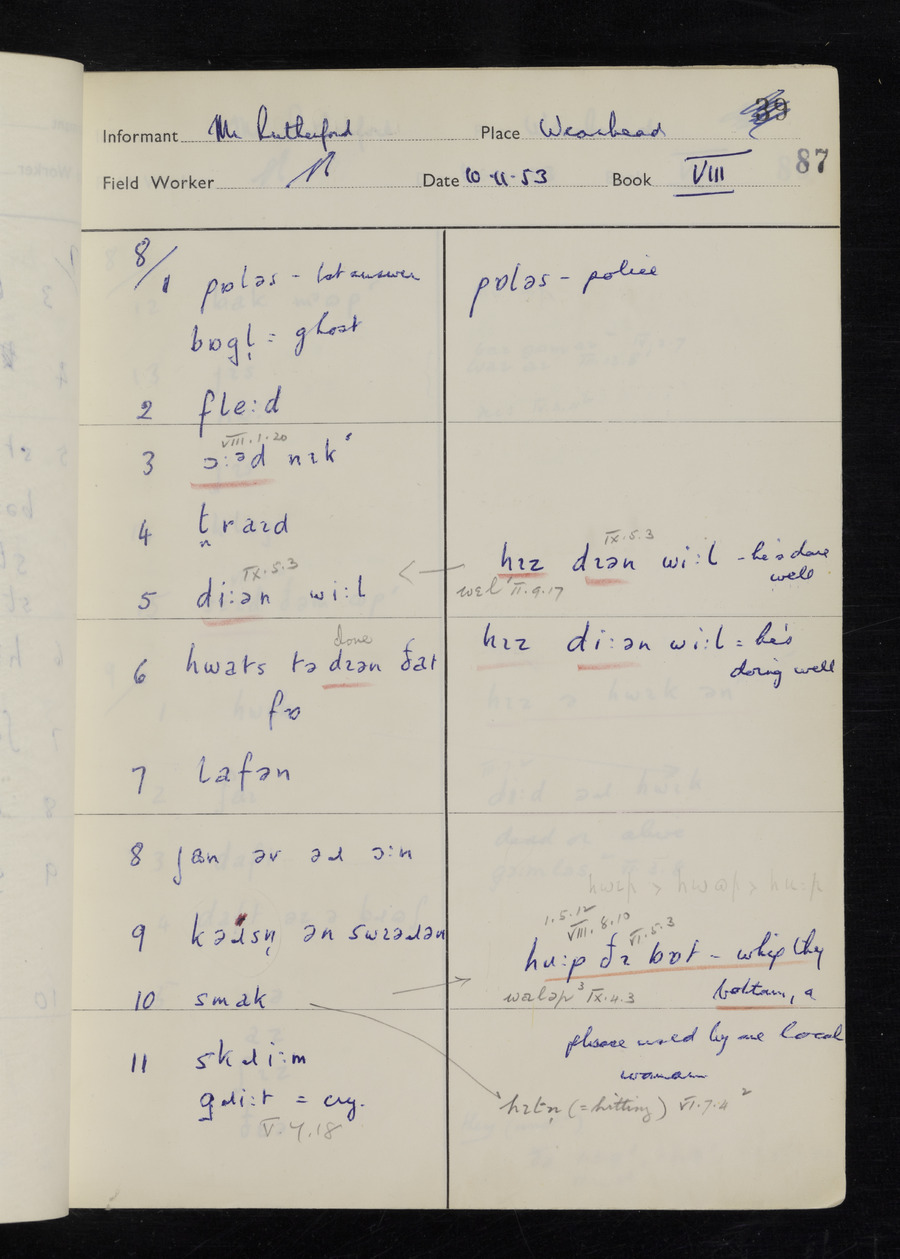 Informant Mr Rutherford Place Wearhead 39
Field Worker Date 10·11·53 Book VIII 87
8/1 pɒləs – 1st answer
bɒgl̩ = ghost
2 fle:d
VIII.1.20
3 ɔ:əd nɪk
4 traɪd
IX.5.3
5 di:ən wi:l
done
6 hwats tə dɪən ðat
fɒ
7 lafən
8 jan əv əɹ ɔ:n
9 kəɹsn̩ ən swɪəɹən
10 smak
11 skɹi:m
gɹi:t = cry.
V.4.18
pɒləs – police
IX.5.3
hɪz dɪən wi:l – he's done
well
wɛl II.9.17
hɪz di:ən wi:l = he's
doing well
hwɪp > hwəp > hu:p
1.5.12
VIII.8.10
VI.5.3
hu:p ðɪ bɒt – whip thy
bottom, a
waləp³ IX.4.3
phrase used by one local
woman
hɪtn̩ (= hitting) VI.7.4 ²